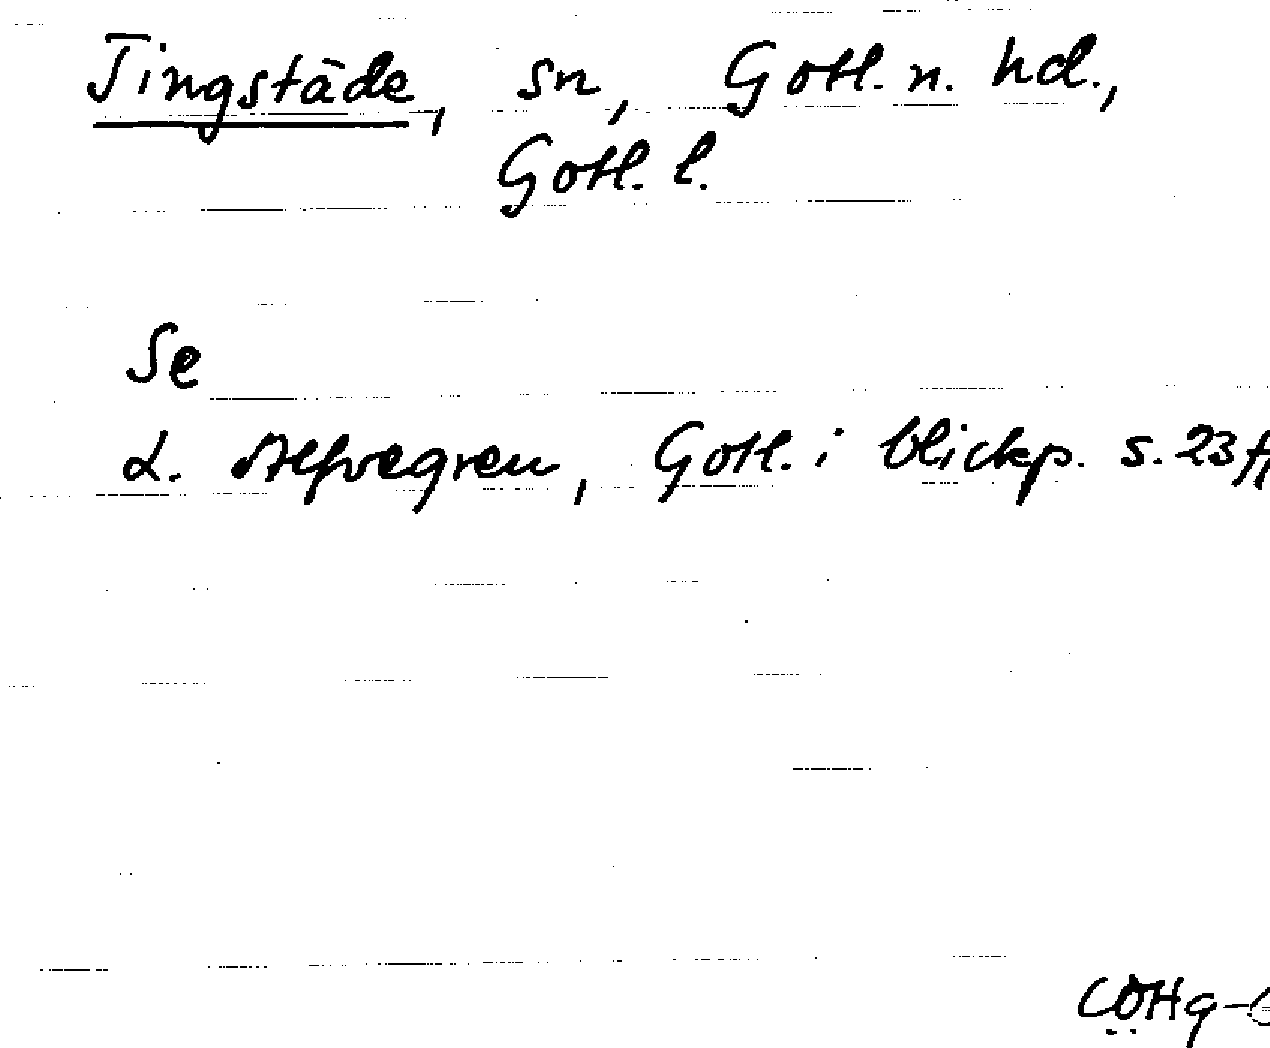 Tingstäde, sn, Gotl. n. hd.,
Gotl. l.
Se
L. Alfvegren, Gotl. i blickp. s. 23 f